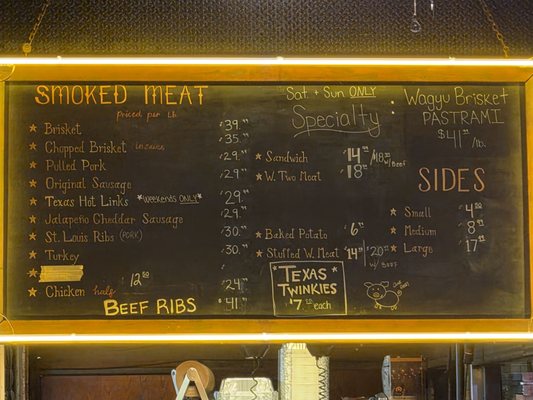 SMOKED MEAT
Priced per Lb.
★ Brisket $39.
★ Chopped Brisket $35.
★ Pulled Pork $29.
★ Original Sausage $29.
★ Texas Hot Links *weekends ONLY* $29.
★ Jalapeño Cheddar Sausage $29.
★ St. Louis Ribs (PORK) $30.
★ Turkey $30.
★ Chicken half 12.00 $24.
BEEF RIBS $41.
Sat + Sun ONLY:
Specialty
★ Sandwich $14 / $18 w/BEEF
★ W. Two Meat $18
★ Baked Potato $6
★ Stuffed W. Meat $14 $20 w/ BEEF
★ TEXAS ★
TWINKIES
$7 each
Wagyu Brisket
PASTRAMI
$41 /lb.
SIDES
★ Small $4
★ Medium $8
★ Large $17